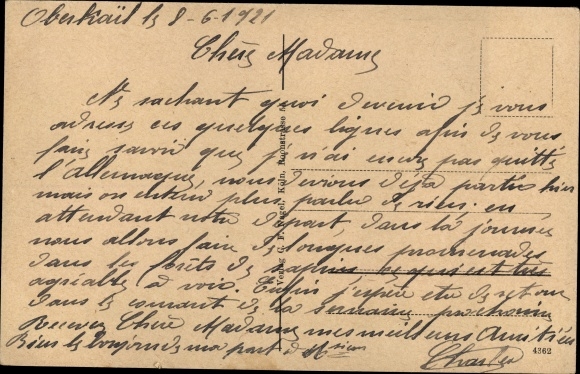 Oberkail le 8-6-1921
Chère Madame
Ne sachant quoi devenir je vous
adresse ces quelques lignes afin de vous
faire savoir que je n'ai encore pas quitté
l'Allemagne, nous devions déjà partir hier
mais on entend plus parler de rien. en
attendant notre départ, dans la journée
nous allons faire de longues promenades
dans les forêts de sapins ce qui est très
agréable à voir. Enfin j'espère être de retour
dans le courant de la semaine prochaine
Recevez Chère Madame mes meilleurs Amitiés
Bien le bonjour de ma part à Mr
Charles
Köln, Hochstrasse
4362